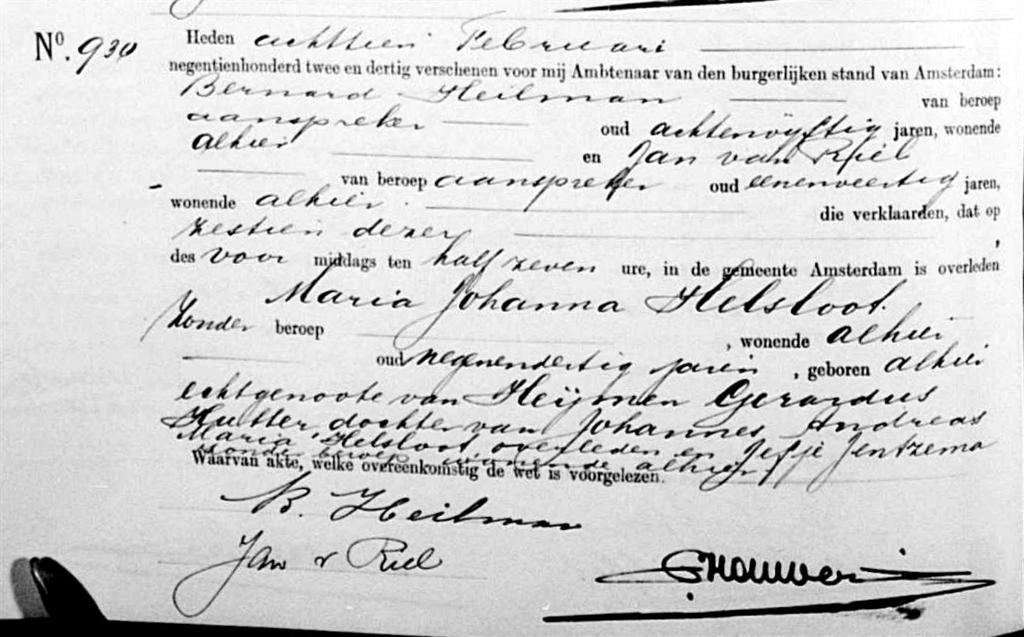 Nº. 930
Heden achttien Februari
negentienhonderd twee en dertig verschenen voor mij Ambtenaar van den burgerlijken stand van Amsterdam:
Bernard Heilman van beroep
aanspreker oud achtenvijftig jaren, wonende
alhier en Jan van Riel
van beroep aanspreker oud eenenveertig jaren,
wonende alhier die verklaarden, dat op
zestien dezer,
des voor middags ten half zeven ure, in de gemeente Amsterdam is overleden
Maria Johanna Helsloot
zonder beroep, wonende alhier
oud negenendertig jaren, geboren alhier
echtgenoote van Heijmen Gerardus
Hutter dochter van Johannes Andreas
Maria Helsloot, overleden en Jetje Jentzema
zonder beroep wonende alhier
Waarvan akte, welke overeenkomstig de wet is voorgelezen.
B. Heilman
Jan v Riel